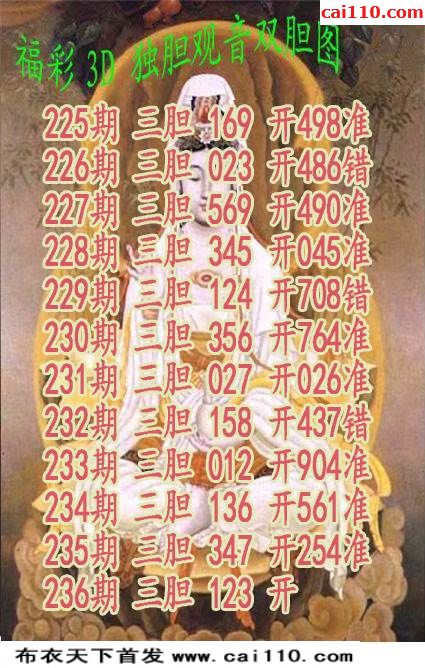 cai110.com
福彩 3D 独胆观音双胆图
225期 三胆 169 开498准
226期 三胆 023 开486错
227期 三胆 569 开490准
228期 三胆 345 开045准
229期 三胆 124 开708错
230期 三胆 356 开764准
231期 三胆 027 开026准
232期 三胆 158 开437错
233期 三胆 012 开904准
234期 三胆 136 开561准
235期 三胆 347 开254准
236期 三胆 123 开
布衣天下首发 www.cai110.com